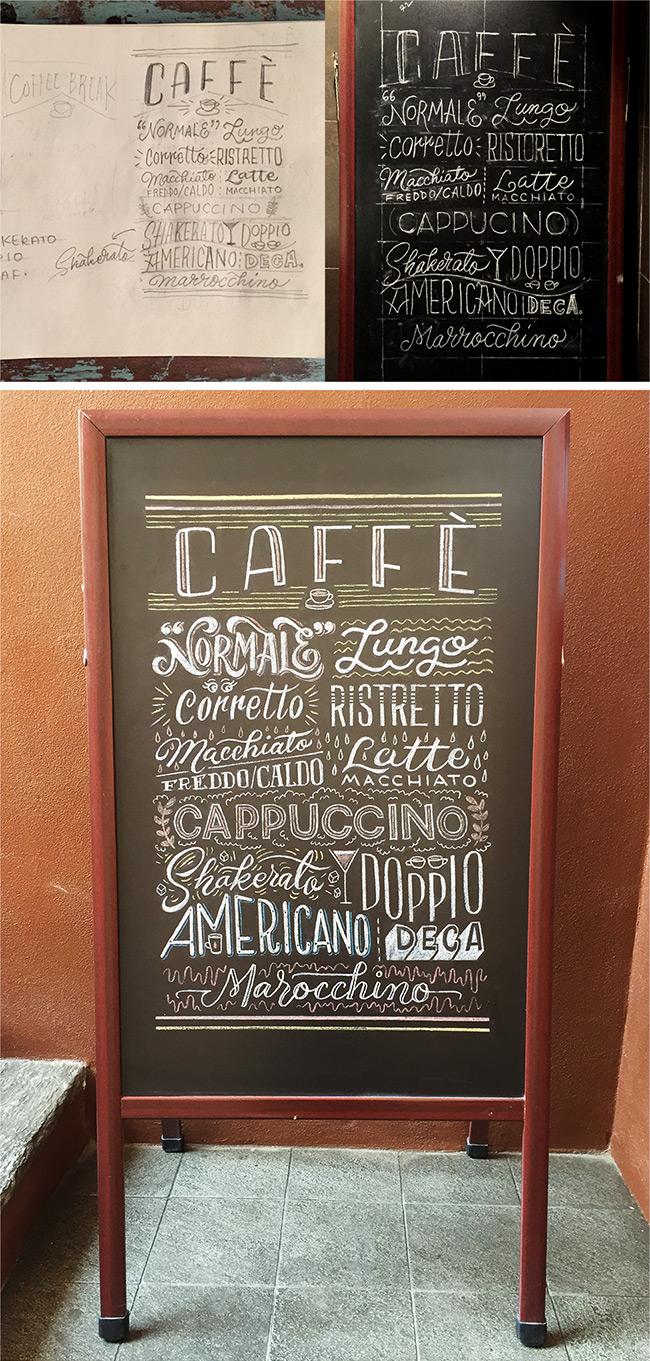 COFFEE BREAK
KERATO
IO
AF.
Shakerato
CAFFÈ
“NORMALE” Lungo
Corretto RISTRETTO
Macchiato Latte
FREDDO/CALDO MACCHIATO
CAPPUCCINO
SHAKERATO DOPPIO
AMERICANO DECA.
Marrocchino
CAFFÈ
“NORMALE” Lungo
Corretto RISTORETTO
Macchiato Latte
FREDDO/CALDO MACCHIATO
(CAPPUCINO)
Shakerato DOPPIO
AMERICANO DECA.
Marrocchino
CAFFÈ
“NORMALE” Lungo
Corretto RISTRETTO
Macchiato Latte
FREDDO/CALDO MACCHIATO
CAPPUCCINO
Shakerato DOPPIO
AMERICANO DECA
Marocchino